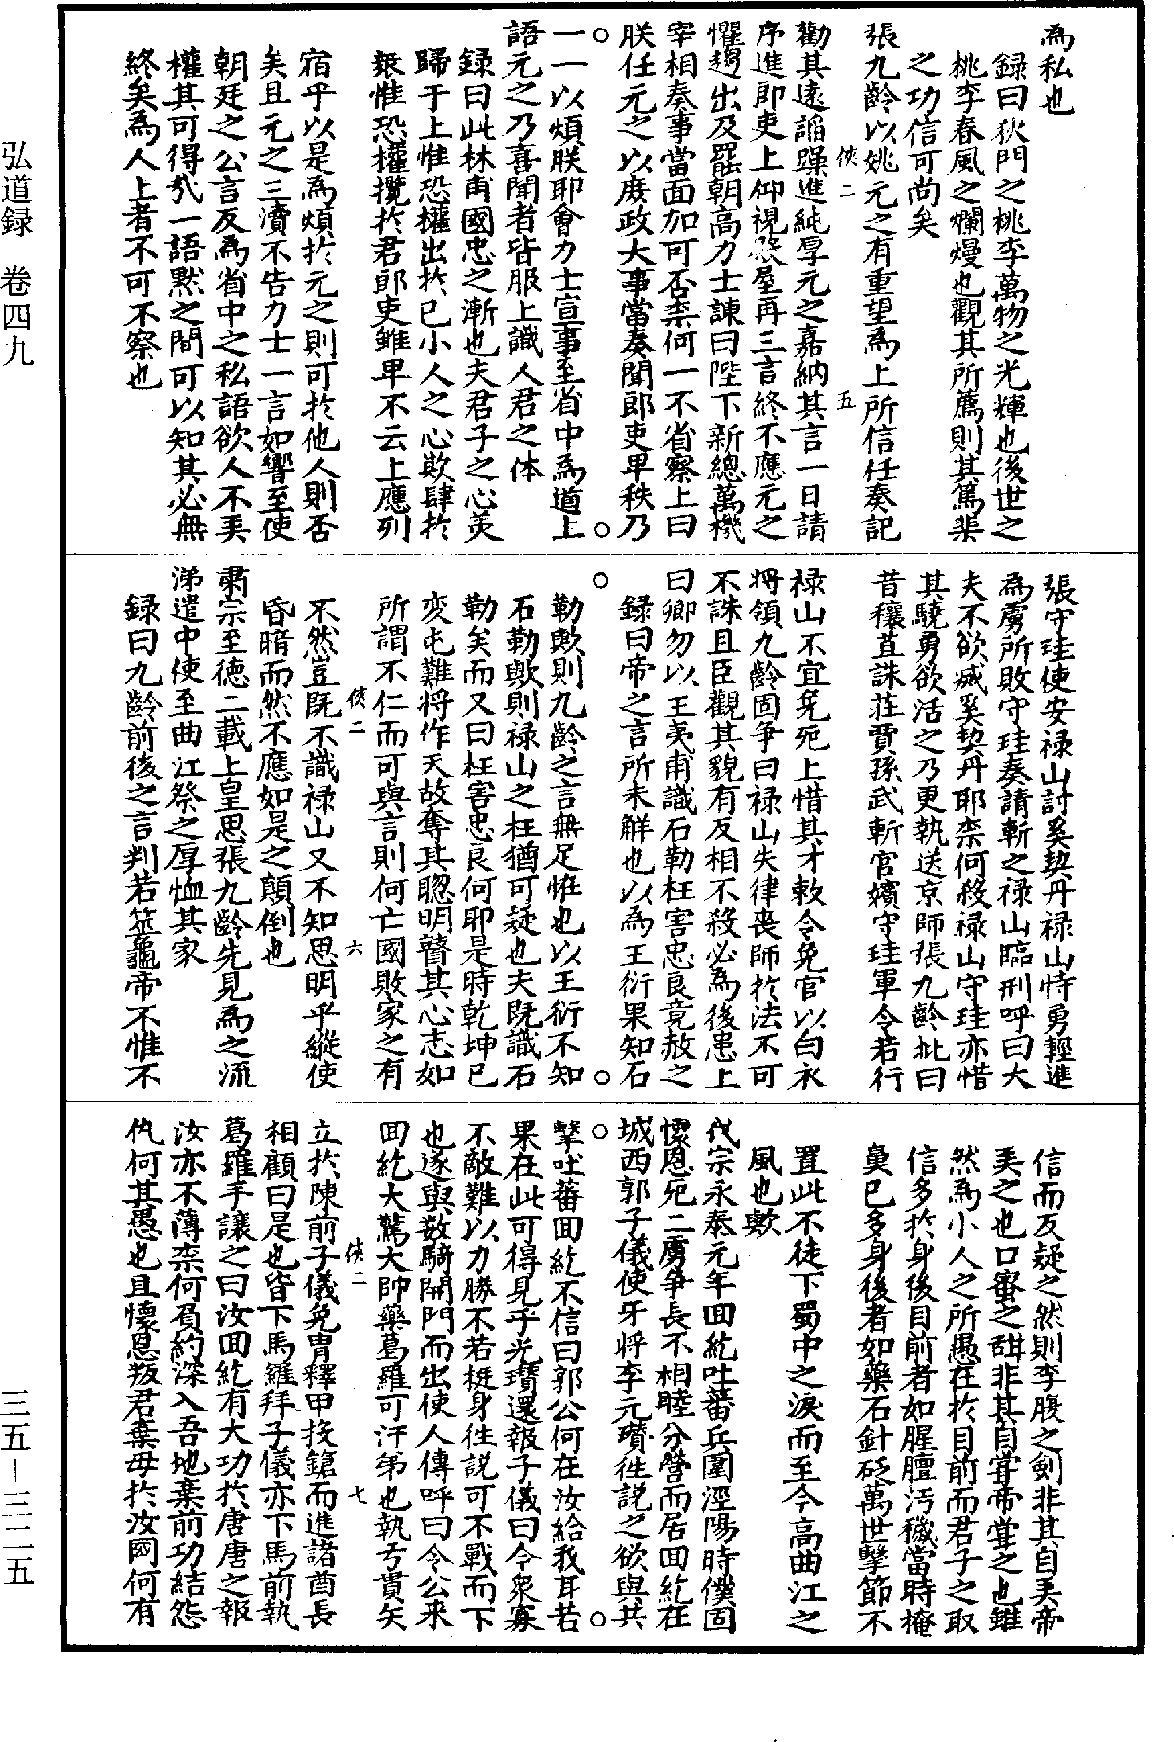 為私也
錄曰狄門之桃李萬物之光輝也後世之
桃李春風之爛熳也觀其所薦則其篤棐
之功信可尚矣
張九齡以姚元之有重望為上所信任奏記
俠二
五
勸其遠謟躁進純厚元之嘉納其言一日請
序進郎吏上仰視殿屋再三言終不應元之
懼趨出及罷朝高力士諫曰陛下新總萬機
宰相奏事當面加可否柰何一不省察上曰
朕任元之以庶政大事當奏聞郎吏卑秩乃
一一以煩朕耶會力士宣事至省中為道上
語元之乃喜聞者皆服上識人君之体
錄曰此林甫國忠之漸也夫君子之心羙
歸于上惟恐權出於已小人之心欺肆於
衆惟恐權攬於君郎吏雖卑不云上應列
宿乎以是為煩於元之則可於他人則否
矣且元之三瀆不告力士一言如響至使
朝廷之公言反為省中之私語欲人不弄
權其可得㢤一語黙之間可以知其必無
終矣為人上者不可不察也
張守珪使安禄山討奚契丹禄山恃勇輕進
為虜所敗守珪奏請斬之禄山臨刑呼曰大
夫不欲滅奚契丹耶柰何殺禄山守珪亦惜
其驍勇欲活之乃更執送京師張九齡批曰
昔穰苴誅莊賈孫武斬宮嬪守珪軍令若行
禄山不宜免死上惜其才敕令免官以白衣
將領九齡固争曰禄山失律喪師於法不可
不誅且臣觀其貌有反相不殺必為後患上
曰卿勿以王夷甫識石勒枉害忠良竟赦之
錄曰帝之言所未解也以為王衍果知石
勒歟則九齡之言無足惟也以王衍不知
石勒歟則禄山之枉猶可疑也夫既識石
勒矣而又曰枉害忠良何耶是時乾坤已
変屯難將作天故奪其聰明瞽其心志如
所謂不仁而可與言則何亡國敗家之有
俠二
六
不然豈既不識禄山又不知思明乎縱使
昏暗而然不應如是之顛倒也
肅宗至德二載上皇思張九齡先見為之流
涕遣中使至曲江祭之厚恤其家
錄曰九齡前後之言判若筮龜帝不惟不
信而反疑之然則李腹之劍非其自弄帝
弄之也口蜜之甜非其自甞帝甞之也雖
然為小人之所愚在於目前而君子之取
信多於身後目前者如腥膻汚穢當時掩
鼻已多身後者如藥石針砭萬世擊節不
置此不徒下蜀中之淚而至今高曲江之
風也歟
代宗永泰元年囬紇吐蕃兵圍涇陽時僕固
懷恩死二虜争長不相睦分營而居囬紇在
城西郭子儀使牙將李元瓚徃說之欲與共
擊吐蕃囬紇不信曰郭公何在汝紿我耳若
果在此可得見乎光瓚還報子儀曰今衆寡
不敵難以力勝不若挺身徃說可不戰而下
也遂與数騎開門而出使人傳呼曰令公來
囬紇大驚大帥藥葛羅可汗弟也執弓貫矢
俠二
七
立於陳前子儀免胄釋甲投鎗而進諸酋長
相顧曰是也皆下馬羅拜子儀亦下馬前執
葛羅手讓之曰汝囬紇有大功於唐唐之報
汝亦不薄柰何負約深入吾地棄前功結怨
仇何其愚也且懷恩叛君棄母於汝國何有
弘道録 卷四九
三五—三二五